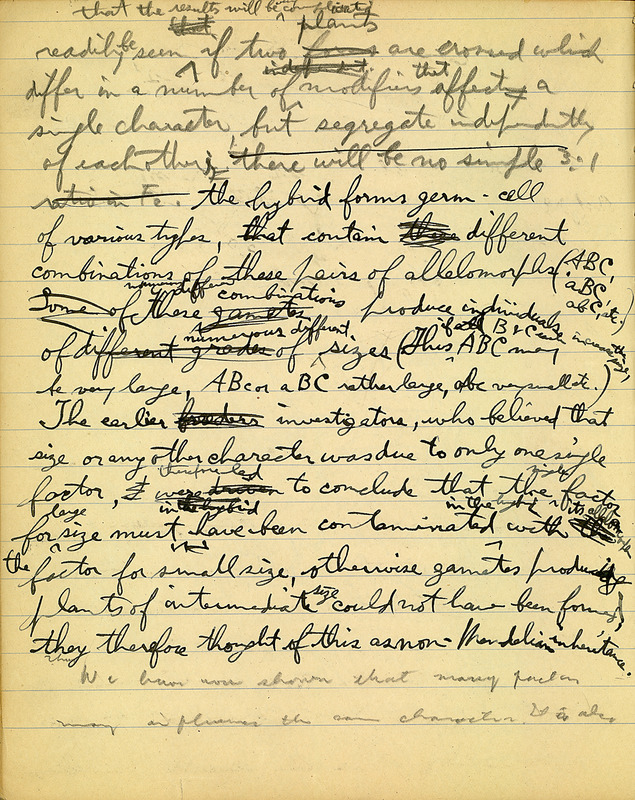 that the results will be complicated
that plants
readily be seen if two forms are crossed which
independent
differ in a number of modifiers that affect a
single character, but segregate independently
of each other, there will be no simple 3:1
ratio in F2. the hybrid forms germ-cell
of various types, that contain these different
combinations of these pairs of allelomorphs (ABC,
aBC,
abC, etc.)
numerous different combinations
Some of these gametes produce individuals
numerous different if all B & C
of different grades of sizes (Thus ABC may
be very large, ABc or aBC rather large, abc very small etc.)
The earlier breeders investigators, who believed that
size or any other character was due to only one single
therefore led single
factor, were driven to conclude that the factor
large in the hybrid in the
for size must have been contaminated with the
the factor for small size, otherwise gametes producing
size
plants of intermediate could not have been formed,
they therefore thought of this as non-Mendelian inheritance.
We know now shown that many factors
may influence the same character. It is also